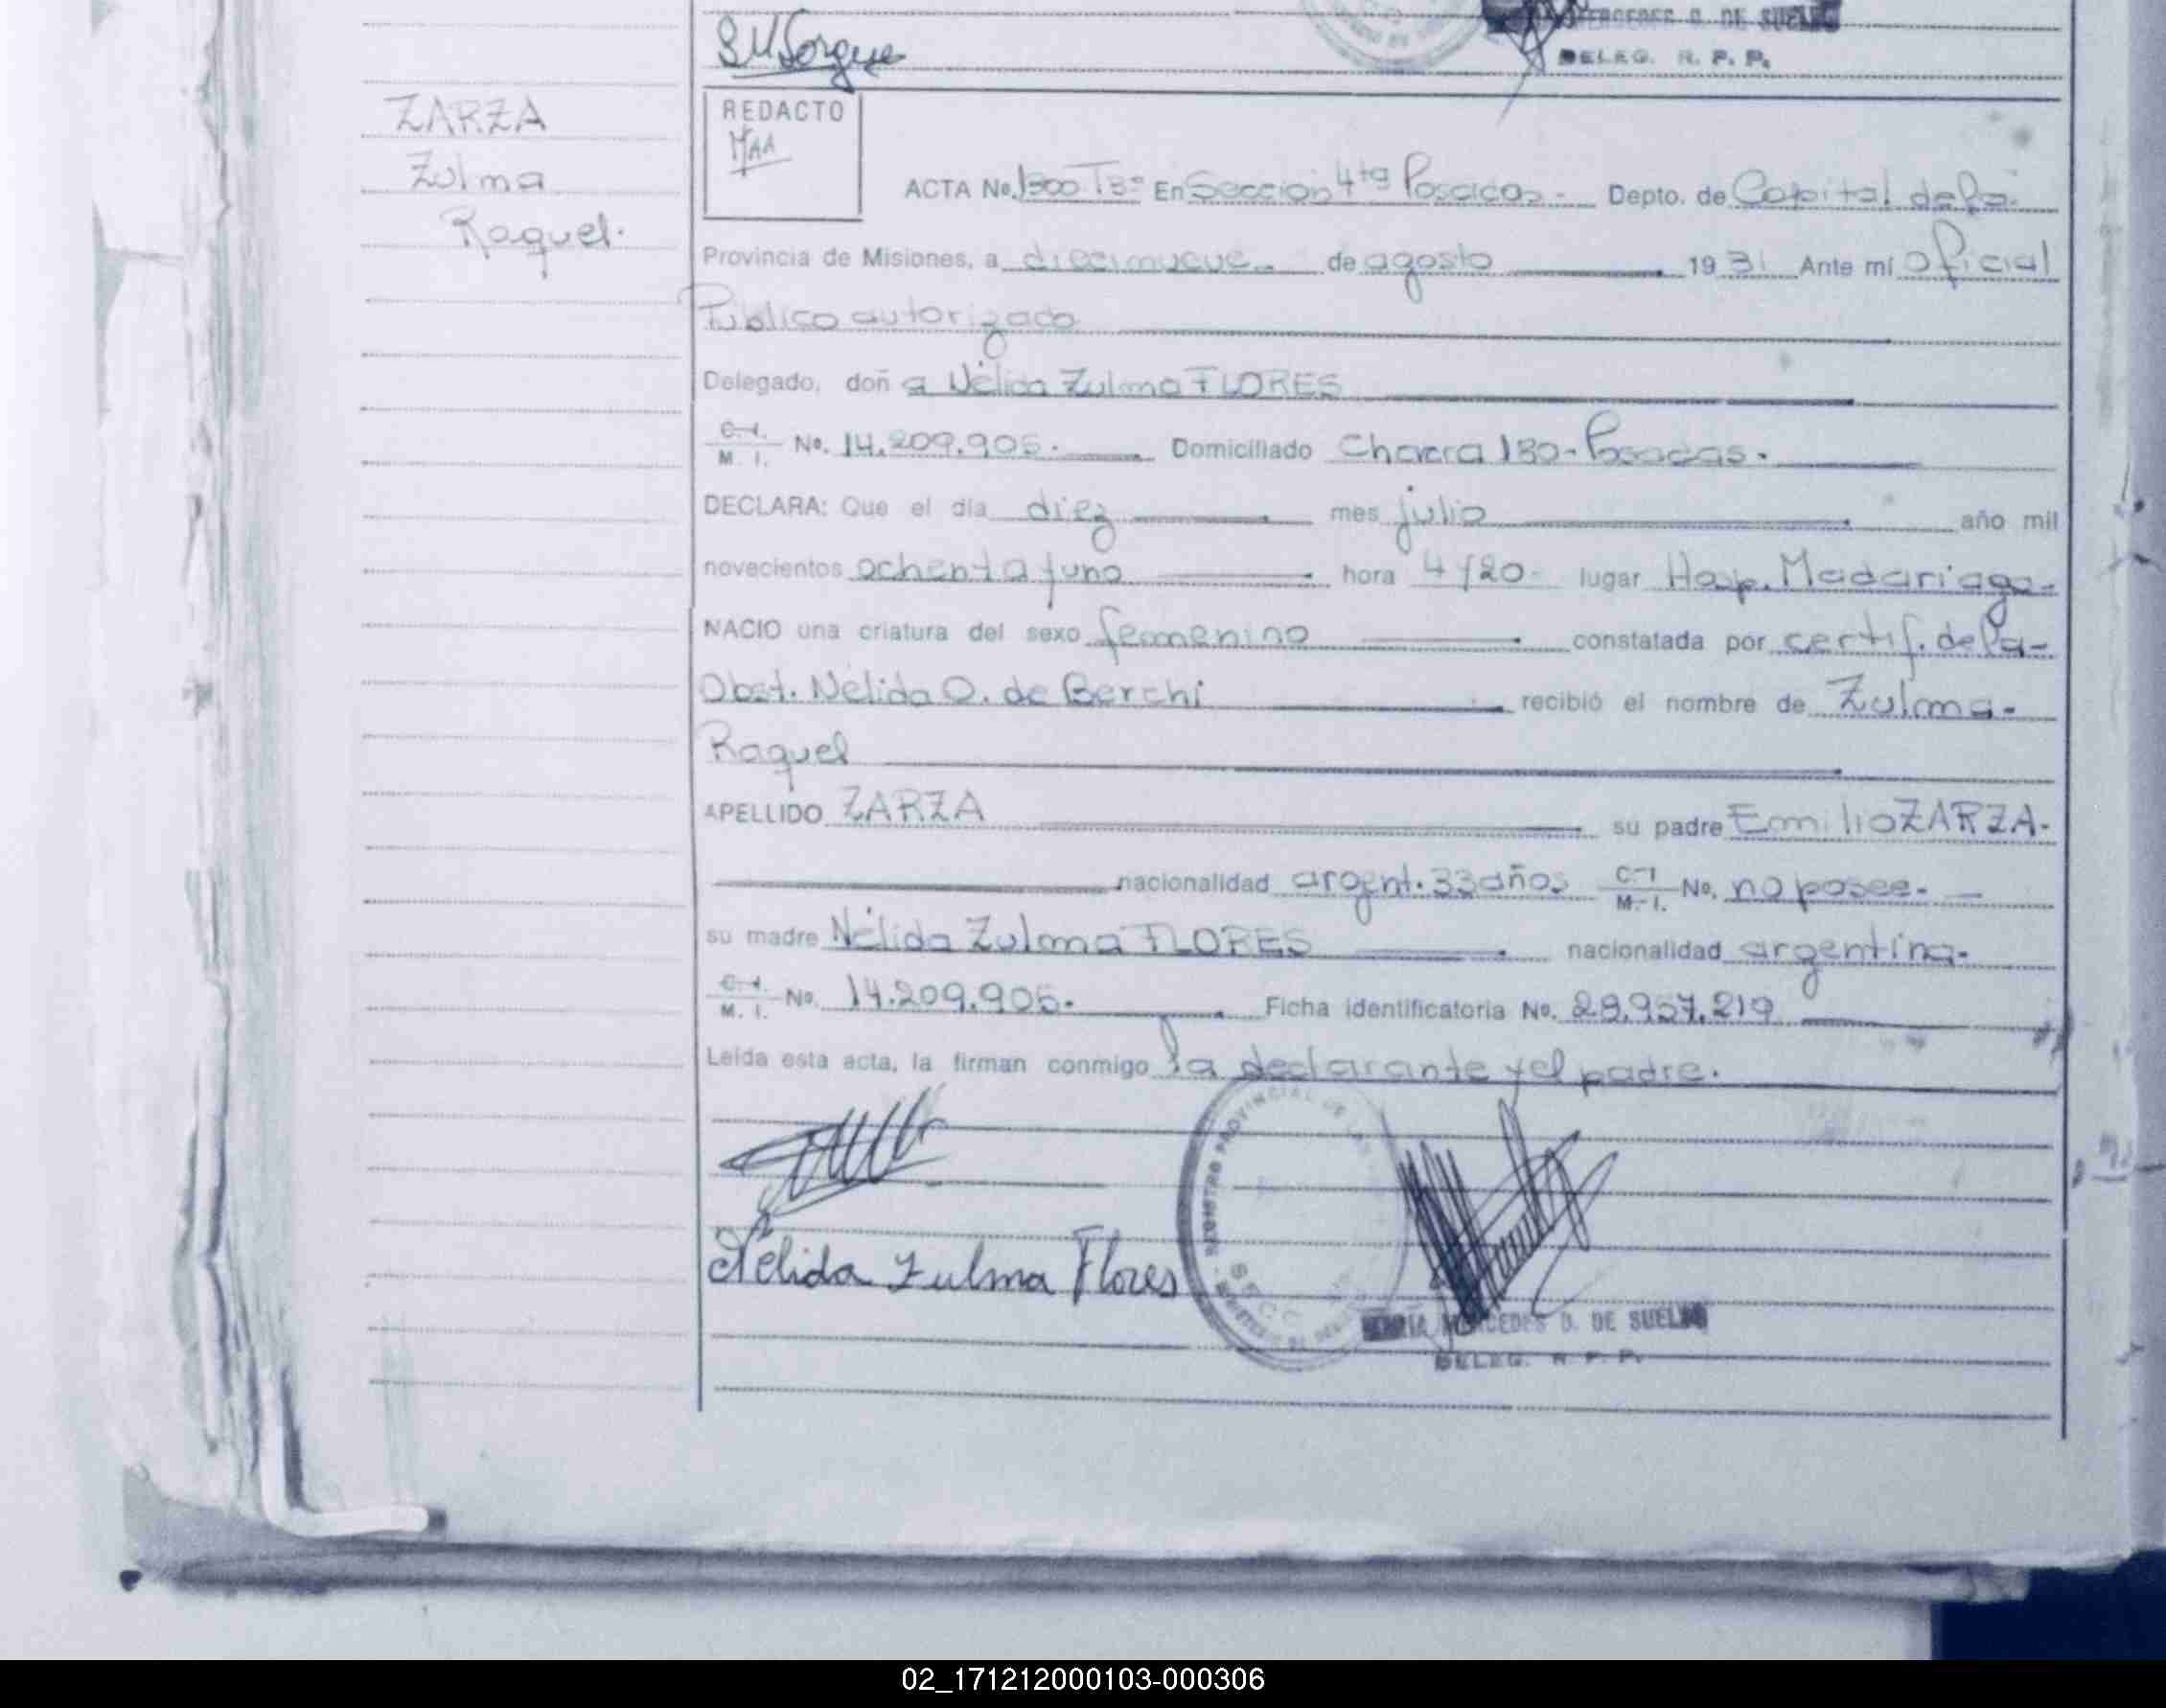 MERCEDES D. DE SUELDO
DELEG. R. P. P.
ZARZA
Zulma
Raquel.
REDACTO
MAA
ACTA No. 1300 T3º En Seccion 4ta Posadas - Depto. de Capital de la-
Provincia de Misiones, a diecinueve - de agosto 19 81 Ante mí oficial
Publico autorizado
Delegado, doñ a Nélida Zulma FLORES
C.I. M. I. No. 14.209.905. Domiciliado Chacra 130-Posadas.
DECLARA: Que el día diez mes julio año mil
novecientos ochenta y uno hora 4/20- lugar Hosp. Madariaga-
NACIO una criatura del sexo femenino constatada por certif. de la-
Obst. Nélida O. de Berchi recibió el nombre de Zulma-
Raquel
APELLIDO ZARZA su padre Emilio ZARZA-
nacionalidad argent. 33 años C.I. M. I. No. no posee-
su madre Nélida Zulma FLORES nacionalidad argentina-
C.I. M. I. No. 14.209.905. Ficha identificatoria No. 28.957.219
Leída esta acta, la firman conmigo la declarante y el padre.
REGISTRO PROVINCIAL DE LAS
Nélida Zulma Flores
MARÍA MERCEDES D. DE SUELDO
DELEG. R. P. P.
02_171212000103-000306